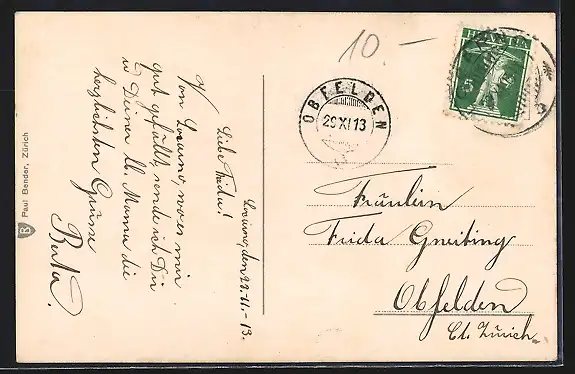 10.–
HELVETIA
5
OBFELDEN
29 XI 13
Fräulein
Frida Gneiting
Obfelden
Ct. Zürich
Locarno, den 28.11.–13.
Liebe Frida!
Von Locarno, wo es mir
gut gefällt, sende ich Dir
u. Deiner lb. Mama die
herzlichsten Grüsse
Berta.
B Paul Bender, Zürich